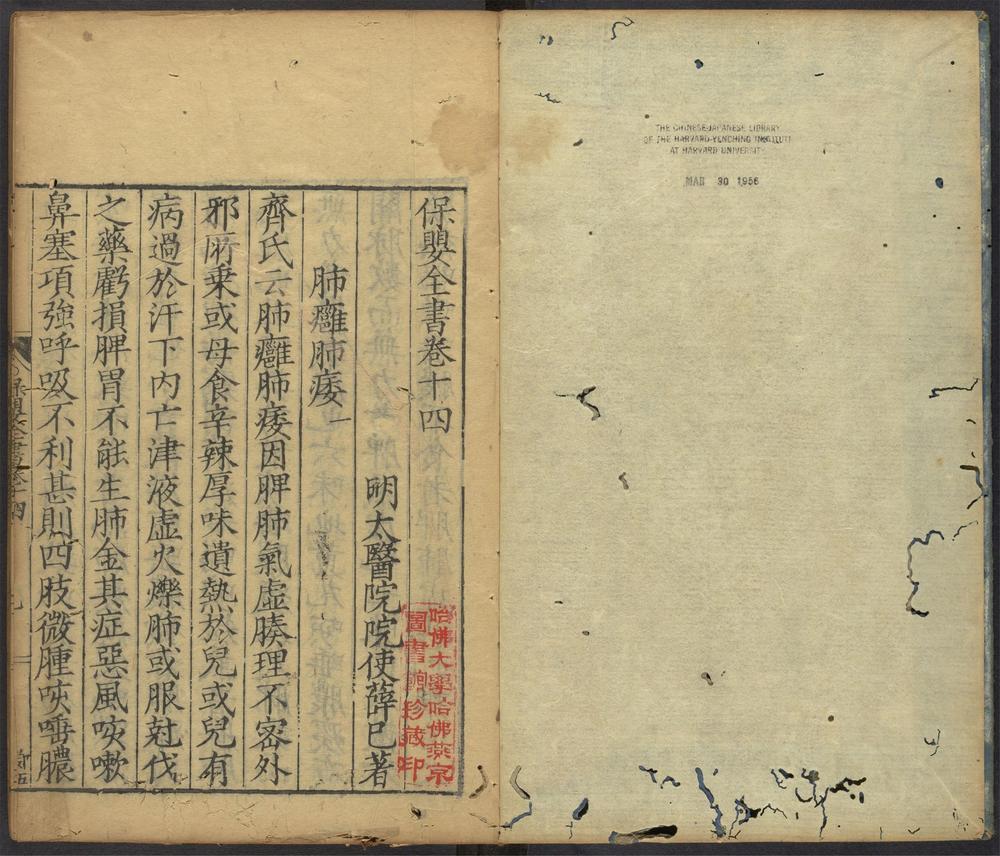 保嬰全書卷十四
明太醫院院使薛已著
肺癰肺痿一
齊氏云肺癰肺痿因脾肺氣虛腠理不密外
邪所乗或母食辛辣厚味遺熱於兒或兒有
病過於汗下内亡津液虛火爍肺或服尅伐
之藥虧損脾胃不能生肺金其症惡風咳嗽
鼻塞項強呼吸不利甚則四肢微腫咳唾膿
哈佛大學哈佛燕京
圖書館珍藏印
THE CHINESE-JAPANESE LIBRARY
OF THE HARVARD-YENCHING INSTITUTE
AT HARVARD UNIVERSITY
MAR 30 1956